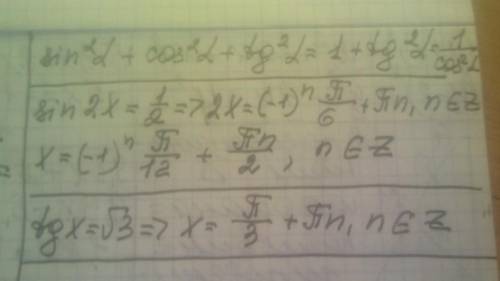 sin²α + cos²α + tg²α = 1 + tg²α = 1/cos²α
sin 2x = 1/2 => 2x = (-1)ⁿ π/6 + πn, n ∈ Z
x = (-1)ⁿ π/12 + πn/2, n ∈ Z
tg x = √3 => x = π/3 + πn, n ∈ Z